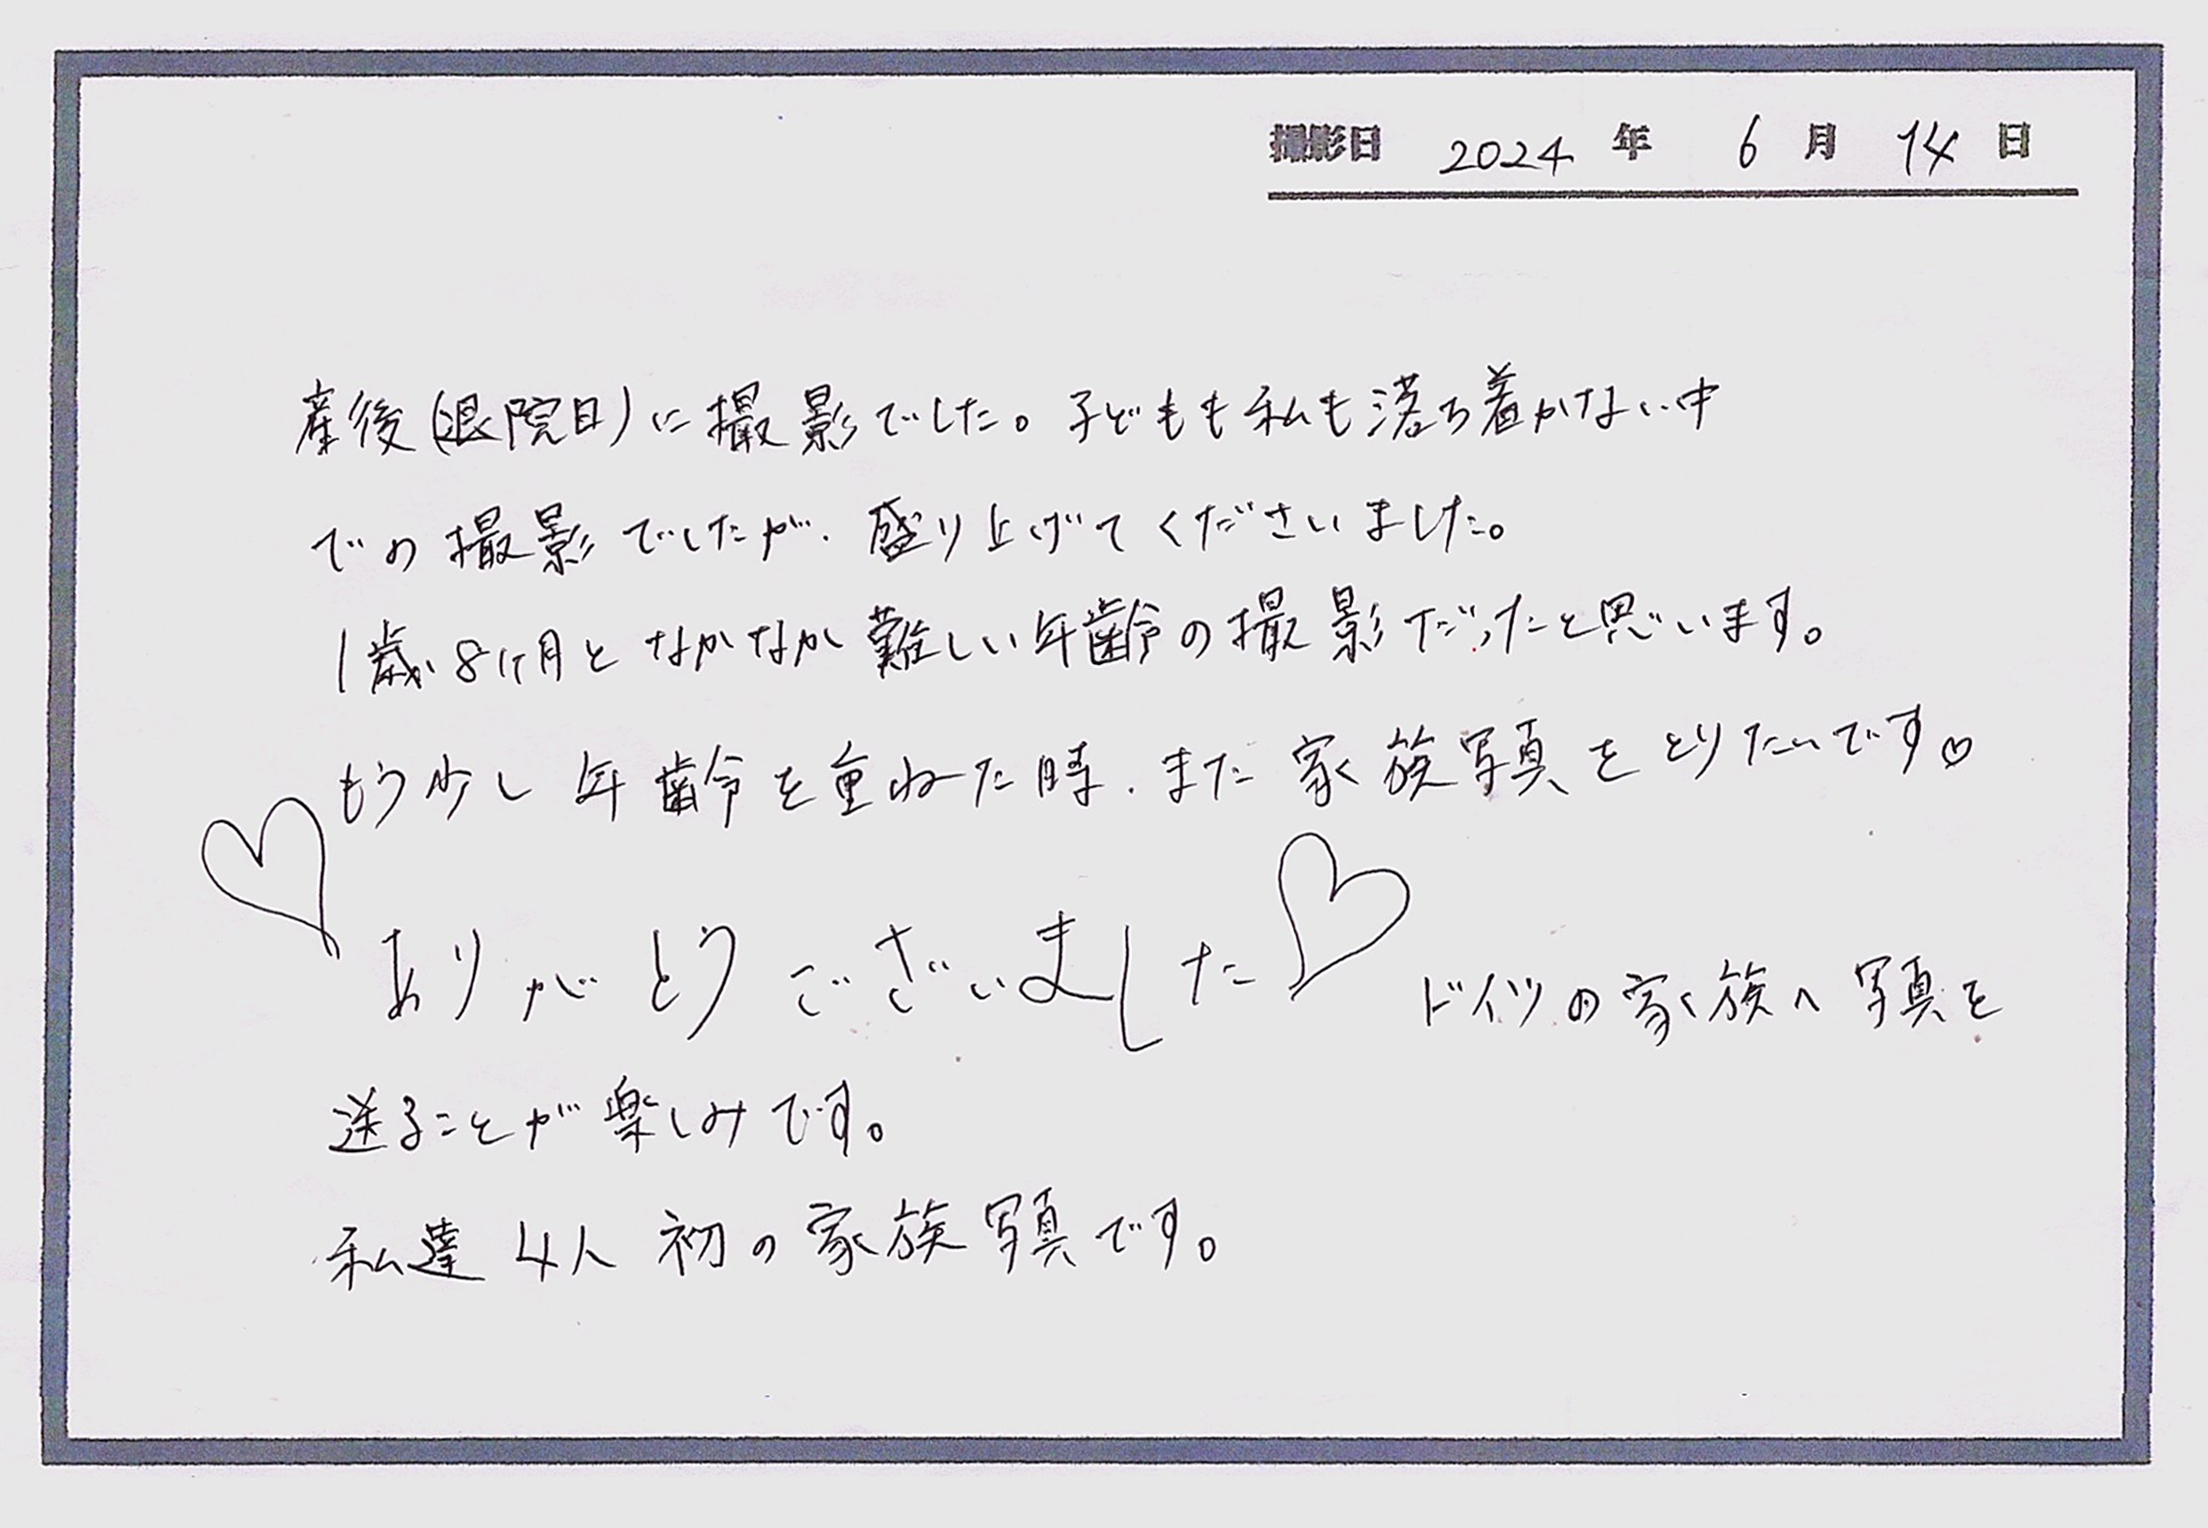 撮影日 2024 年 6 月 14 日
産後(退院日)に撮影でした。子どもも私も落ち着かない中
での撮影でしたが、盛り上げてくださいました。
1歳8ヶ月となかなか難しい年齢の撮影だったと思います。
もう少し年齢を重ねた時、また家族写真をとりたいです♡
♡ありがとうございました♡ ドイツの家族へ写真を
送ることが楽しみです。
私達4人初の家族写真です。